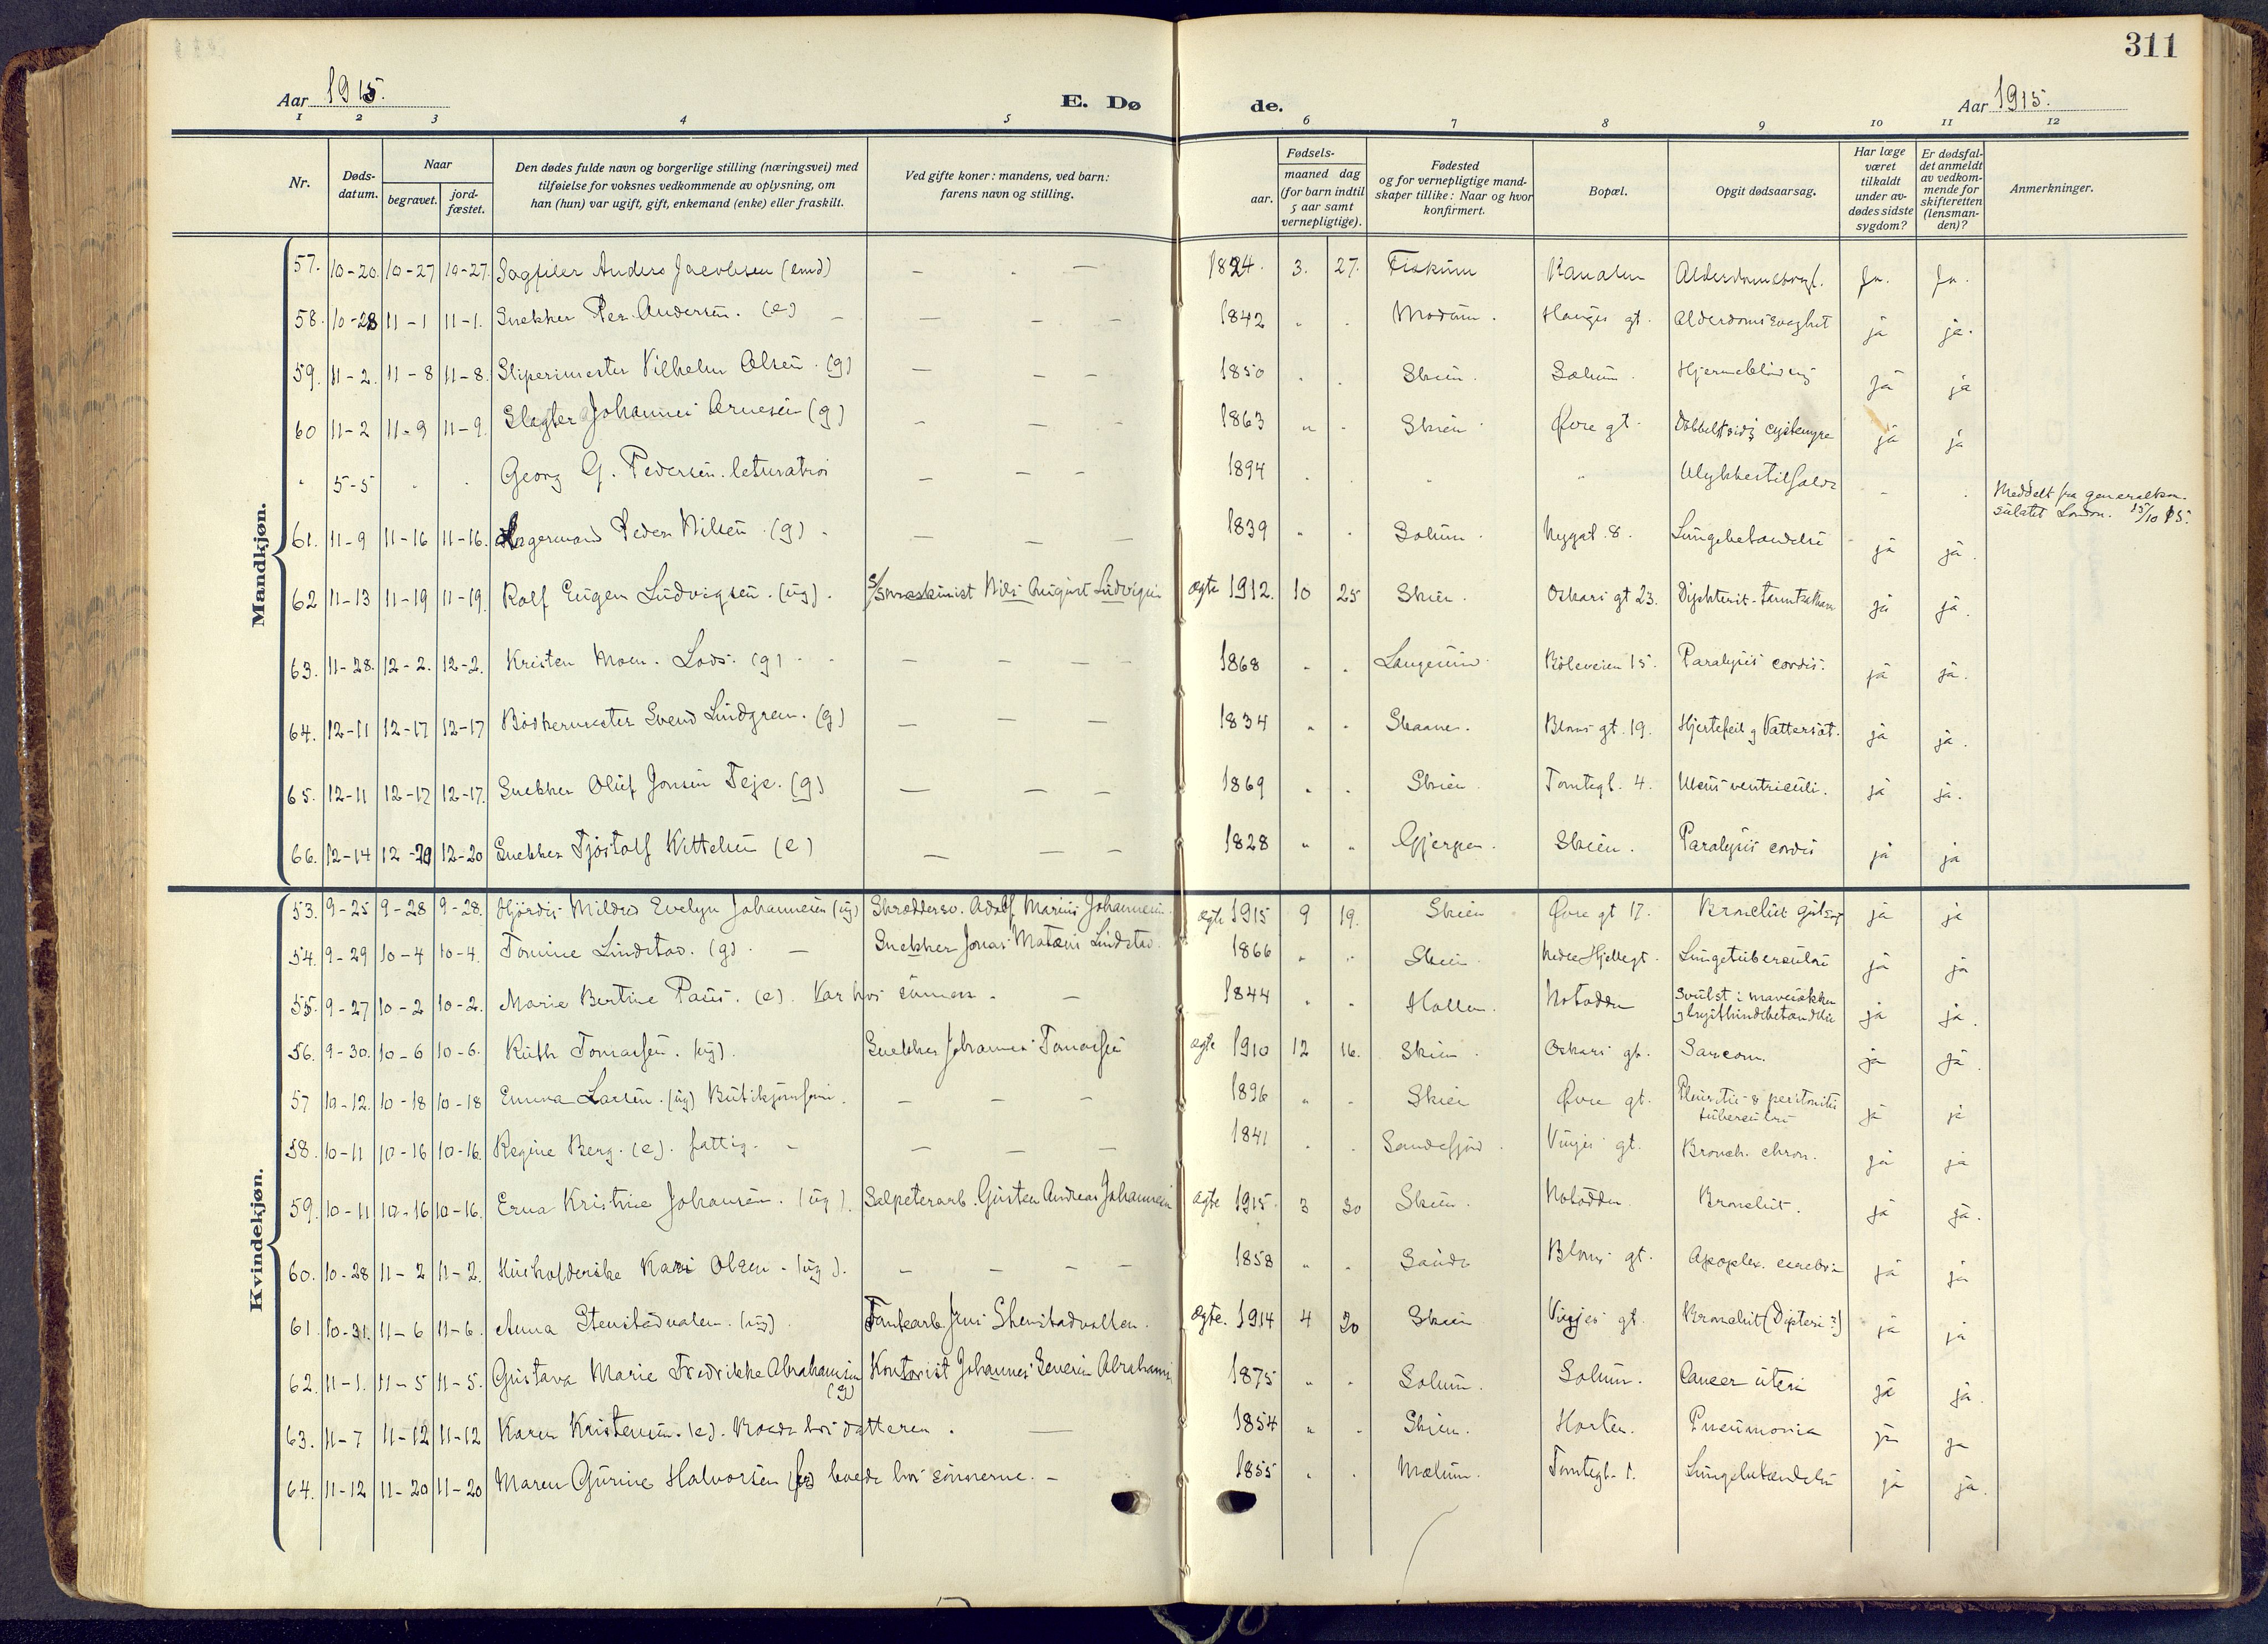 311
Aar 1915. E. Dø de. Aar 1915.
1 2 3 4 5 6 7 8 9 10 11 12
Nr. Døds-datum. Naar begravet. jord-fæstet. Den dødes fulde navn og borgerlige stilling (næringsvei) med tilføielse for voksnes vedkommende av oplysning, om han (hun) var ugift, gift, enkemand (enke) eller fraskilt. Ved gifte koner: mandens, ved barn: farens navn og stilling. Fødsels- aar. maaned dag (for barn indtil 5 aar samt vernepligtige). Fødested og for vernepligtige mand-skaper tillike: Naar og hvor konfirmert. Bopæl. Opgit dødsaarsag. Har læge været tilkaldt under av-dødes sidste sygdom? Er dødsfal-det anmeldt av vedkom-mende for skifteretten (lensman-den)? Anmerkninger.
Mandkjøn.
57. 10-20. 10-27 10-27. Sagfiler Anders Jacobsen (emd) — — 1824. 3. 27. Fiskum Kanalen Ja. Ja.
58. 10-28 11-1 11-1. Snekker Per Andersen. (e) — — — — 1842 " . Modum. Hauges gt. Alderdomssvaghet ja ja.
59. 11-2. 11-8 11-8. Sliperimester Vilhelm Olsen. (g) — — — 1850 . . Skien. Solum. Hjerneblødning ja ja
60 11-2 11-9 11-9. Slagter Johannes Arnesen (g) — — — 1863 " . Skien. Øvre gt. Dobbeltsidig cystenyre ja ja
" 5-5 . . Georg G. Pedersen. — — — 1894 . . " " Ulykkestilfælde - . Meddelt fra generalkon-
sulatet London. 15/10 15.
61. 11-9 11-16 11-16. Lagermand Peder Nilsen. (g) — — — 1839 " . Solum. Nygat. 8. Lungebetændelse ja ja.
62 11-13 11-19 11-19. Rolf Eugen Ludvigsen. (ug). S/S maskinist Nils August Ludvigsen ægte 1912. 10 25 Skien. Oskars gt 23. Diphterit - ja ja.
63. 11-28. 12-2. 12-2. Kristen Moen. Lods. (g) — — — 1868 " . Langesund. Böleveien 15. Paralysis cordis. ja ja.
64. 12-11 12-17 12-17 Bödkermester Svend Lindgren. (g) — — — 1834 " . Skaane. Bloms gt. 19. Hjertefeil og Vattersot. ja ja.
65. 12-11 12-17 12-17. Snekker Oluf Jonsen Teje. (g) — — — 1869 " . Skien. Tomtegt. 4. Ulcus ventriculi. ja ja.
66. 12-14 12-20 12-20 Snekker Tjöstolf Kittelsen (e) — — — 1828 " " Gjerpen. Skien. Paralysis cordis ja ja
Kvindekjøn.
53. 9-25 9-28 9-28. Hjördis Mildred Evelyn Johannesen (ug) Skræddersv. Adolf Marius Johannesen. ægte 1915 9 19. Skien Øvre gt 17. Bronchit ja ja
54. 9-29 10-4 10-4. Tomine Lindstad. (g). — Snekker Jonas Matæus Lindstad. 1866 " " Skien. Nedre Hjellegt. Lungetuberculose ja ja
55. 9-27 10-2 10-2. Marie Bertine Paus. (e). Var hos sönnen. — 1844 " . Hollen. Notodden Svulst i mavesækken
og brysthindebetændelse ja ja.
56. 9-30. 10-6 10-6. Ruth Tomassen. (ug). Snekker Johannes Tomassen ægte 1910 12 16. Skien. Oskars gt. Sarcom. ja ja.
57 10-12. 10-18 10-18 Emma Larsen. (ug) Butikjomfru. — — — 1896 " . Skien Øvre gt. Pleuritis & peritonitis
tuberculose ja ja
58. 10-11 10-16 10-16. Regine Berg. (e). fattig. — — — — 1841 . . Sandefjord. Vinjes gt. Bronch. chron. ja ja
59. 10-11 10-16 10-16. Erna Kristine Johansen. (ug). Salpeterarb. Gusten Andreas Johannesen ægte 1915. 3 30 Skien. Notodden. Bronchit. ja ja.
60. 10-28 11-2 11-2. Husholderske Kari Olsen. (ug). — — — — 1858 " . Saude Bloms gt. Apoplex. cerebri ja ja
61. 10-31. 11-6 11-6. Anna Stenstadvalen. (ug). Jens Stenstadvollen. Ægte. 1914 4 20 Skien Vinjes gt. Bronchit (Dipteri?) ja ja
62. 11-1. 11-5 11-5. Gustava Marie Fredrikke Abrahamsen (g) Kontorist Johannes Severin Abrahams 1875 " . Solum. Solum. Cancer uteri ja ja.
63. 11-7 11-12 11-12 Karen Kristensen. (e). Boede hos datteren. — 1854 " . Skien. Horten. Pneumonia ja ja
64. 11-12 11-20 11-20 Maren Gurine Halvorsen boede hos sönnerne. — 1855 . . Mælum. Tomtegt. 1. Lungebetændelse ja ja.